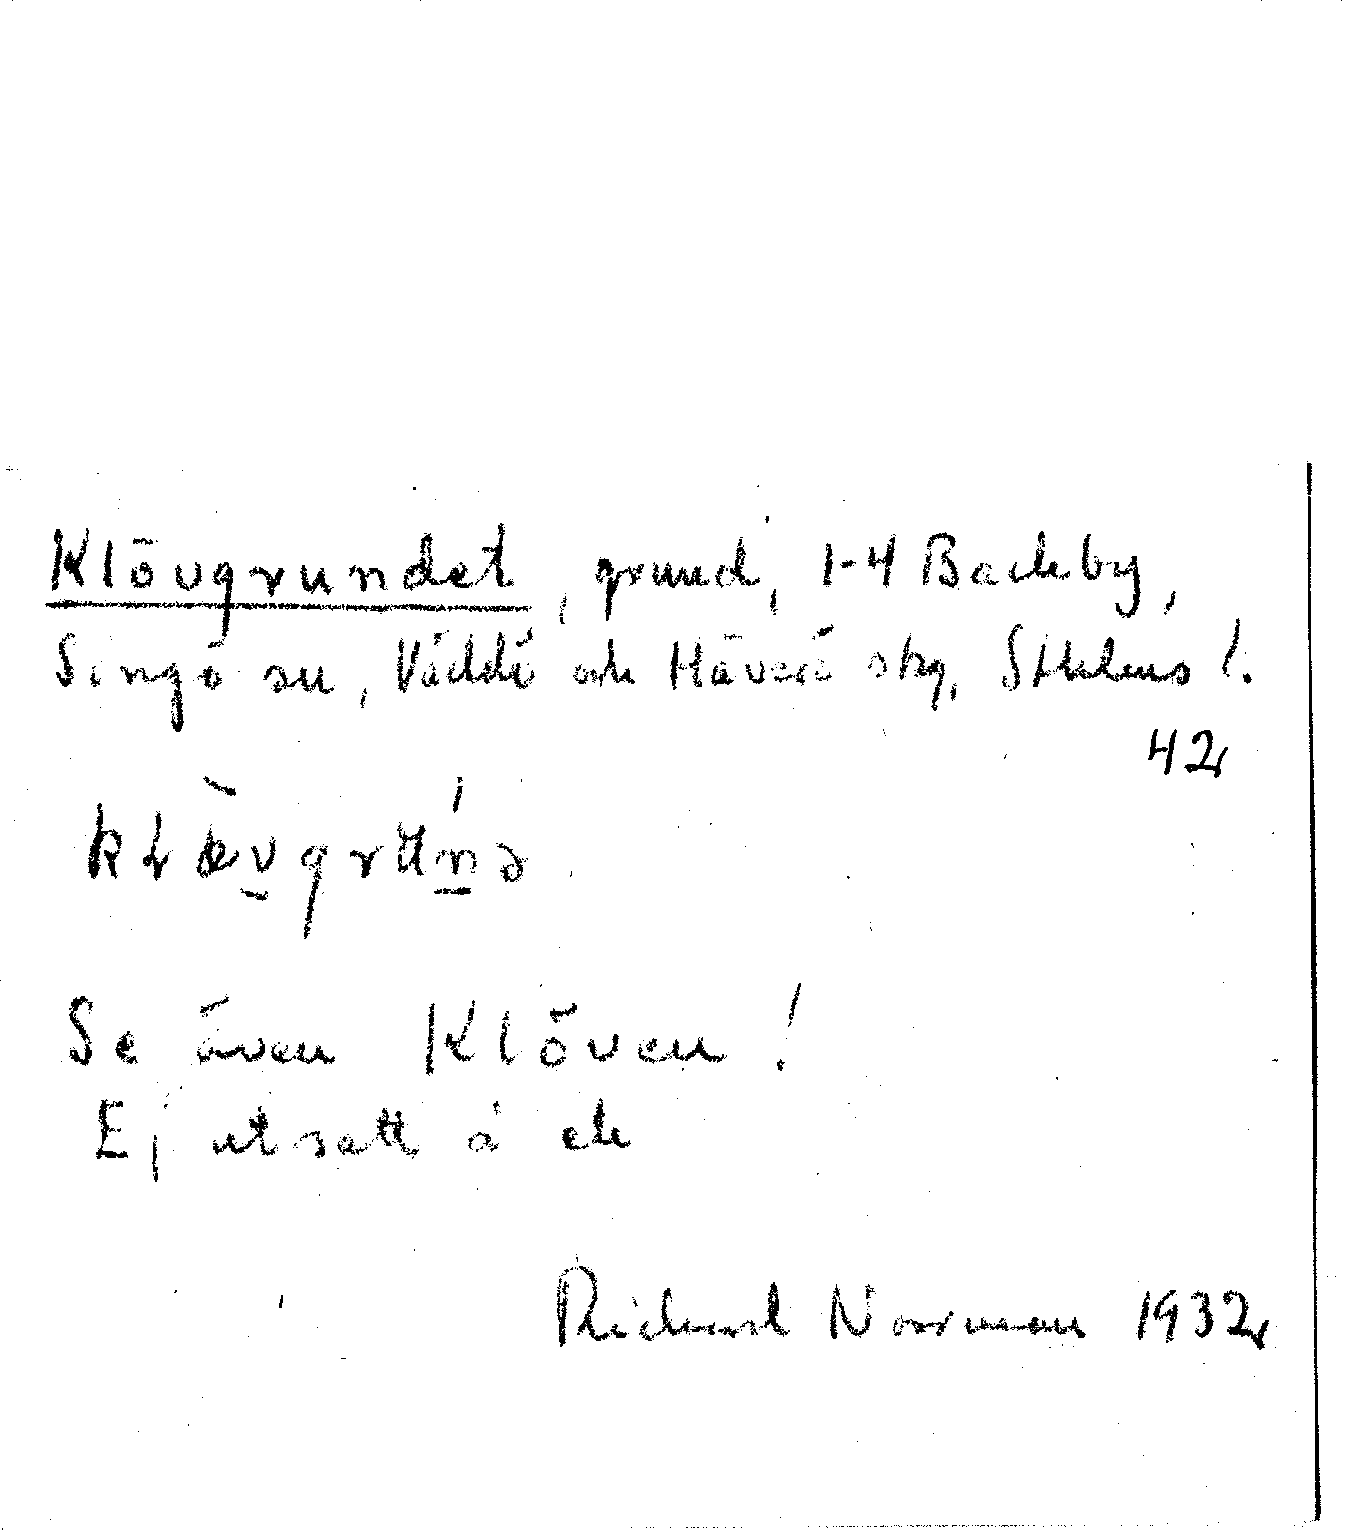 Klövgrundet, grund, 1-4 Backby,
Singö sn, Väddö och Häverö skg, Sthlms l.
42
Se även Klöven!
Ej utsatt å ek
Richard Norrman 1932